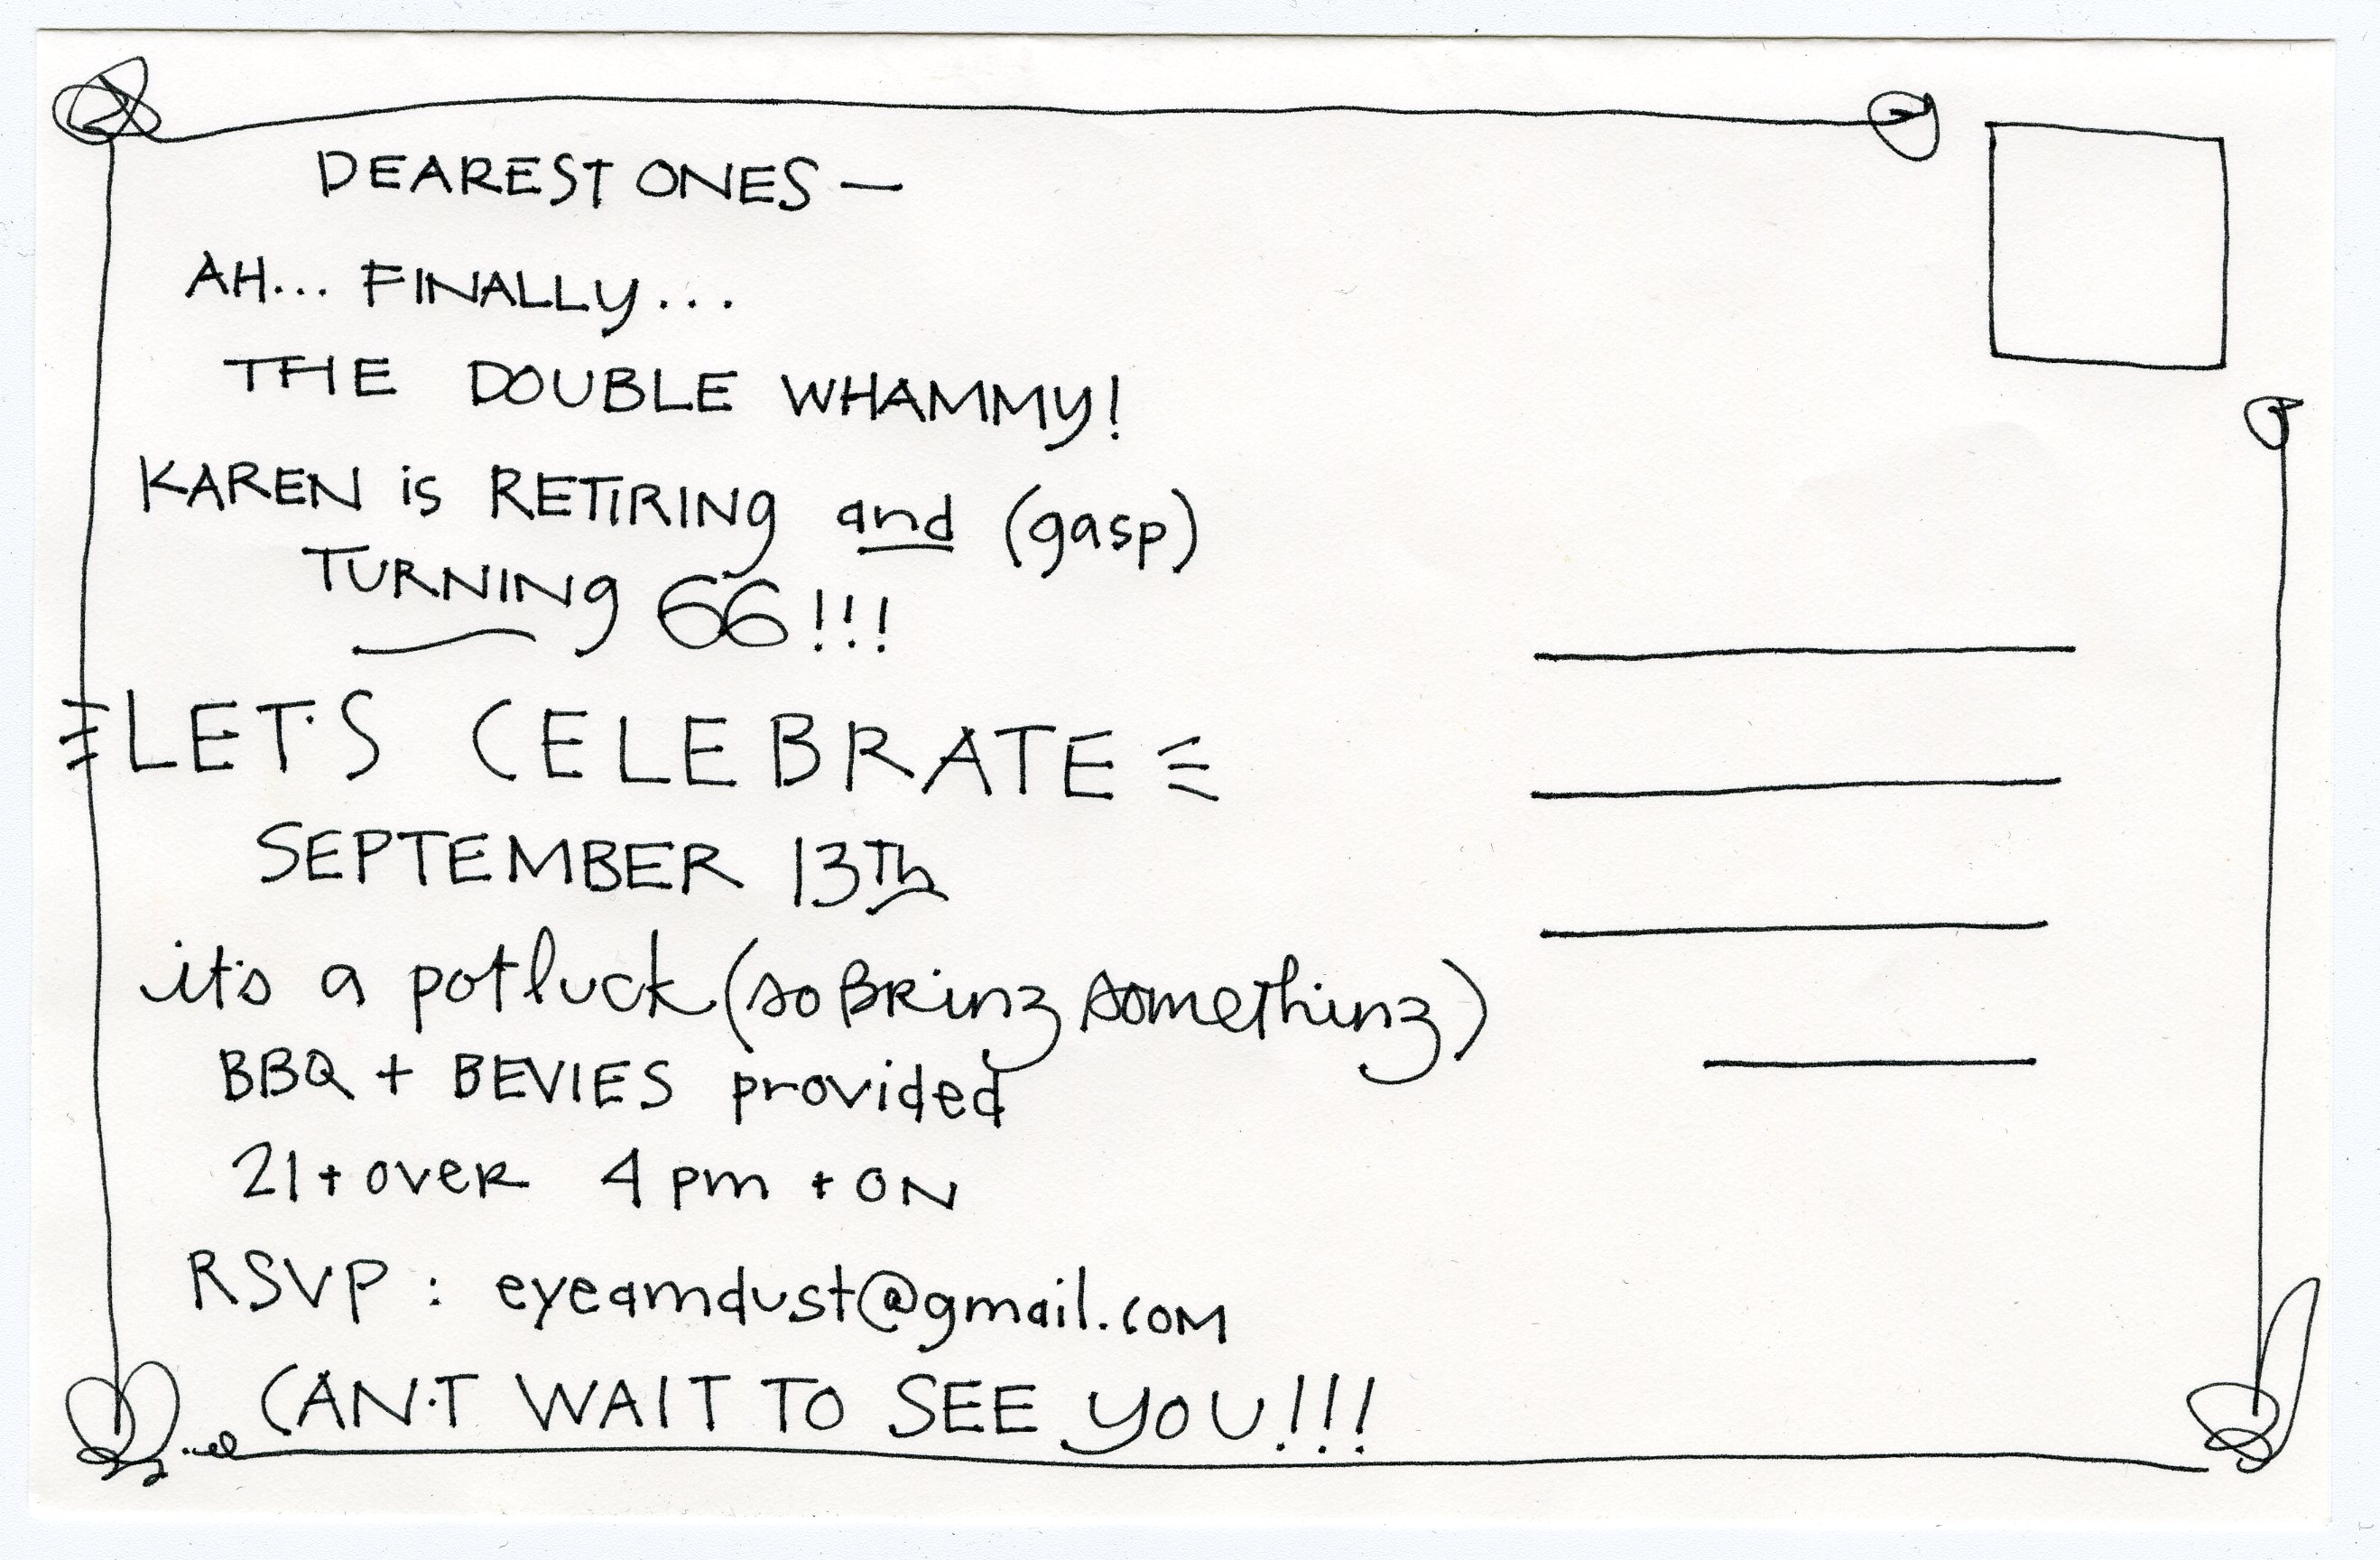 DEAREST ONES —
AH... FINALLy...
THE DOUBLE WHAMMy!
KAREN is RETIRINg and (gasp)
TURNINg 66!!!
LET'S CELEBRATE
SEPTEMBER 13Th
it's a potluck (so BRing something)
BBQ + BEVIES provided
21+oveR 4 pm + ON
RSVP : eyeamdust@gmail.COM
CAN'T WAIT TO SEE yOU!!!